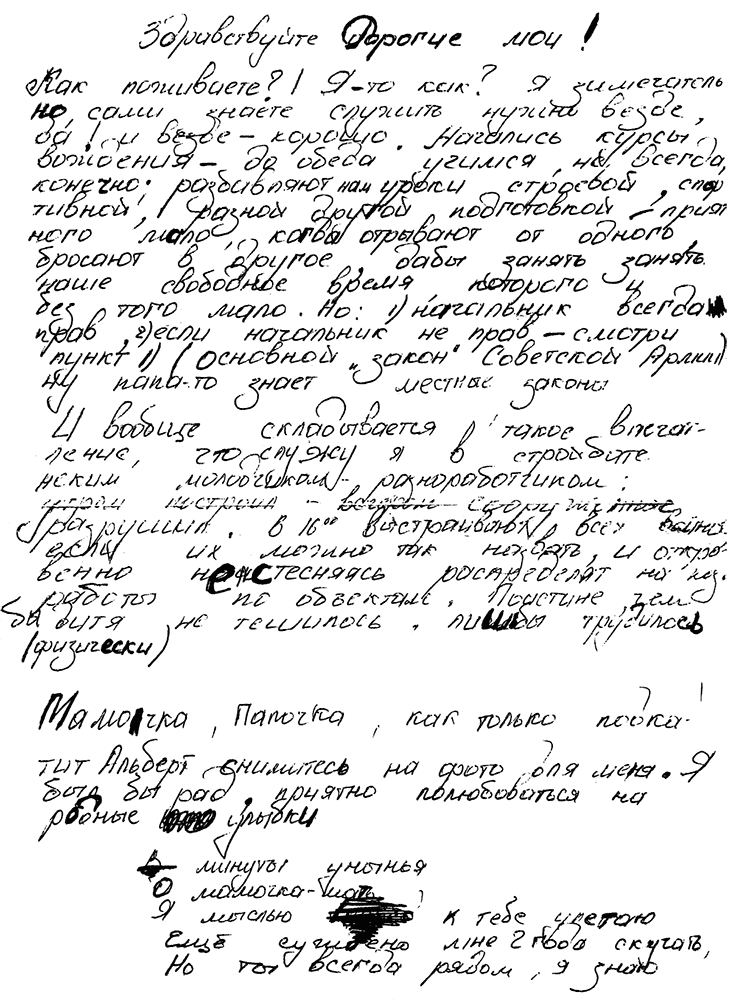 Здравствуйте Дорогие мои!
Как поживаете?! Я-то как? Я зимечатель
но, сами знаете служить нужно везде,
да! и везде – хорошо. Начались курсы
вождения – до обеда учимся, не всегда,
конечно: разбавляют нам уроки строевой, спор
тивной, разной другой подготовкой – прият
ного мало, когда отрывают от одного,
бросают в другое, дабы занять занять
наше свободное время, которого и
без того мало. Но: 1) начальник всегда
прав, 2) если начальник не прав – смотри
пункт 1) (Основной „закон" Советской Армии)
Ну папа-то знает местные законы
И вообще складывается такое впечат-
ление, что служу я в стройбате
неким молодчиком – разноработчиком:
утром построил – вечером
разрушил. В 16⁰⁰ выстраивают всех
если их можно так назвать, и откро-
венно не стесняясь распределят на
работы по объектам. Поистине, чем
бы дитя не тешилось, лишь бы трудилось
(физически)
Мамочка, Папочка, как только подка-
тит Альберт снимитесь на фото для меня. Я
был бы рад, приятно полюбоваться на
родные улыбки
В минуты унынья
О мамочка-мать
Я мыслью к тебе улетаю
Ещё суждено мне 2 года скучать,
Но ты всегда рядом, я знаю